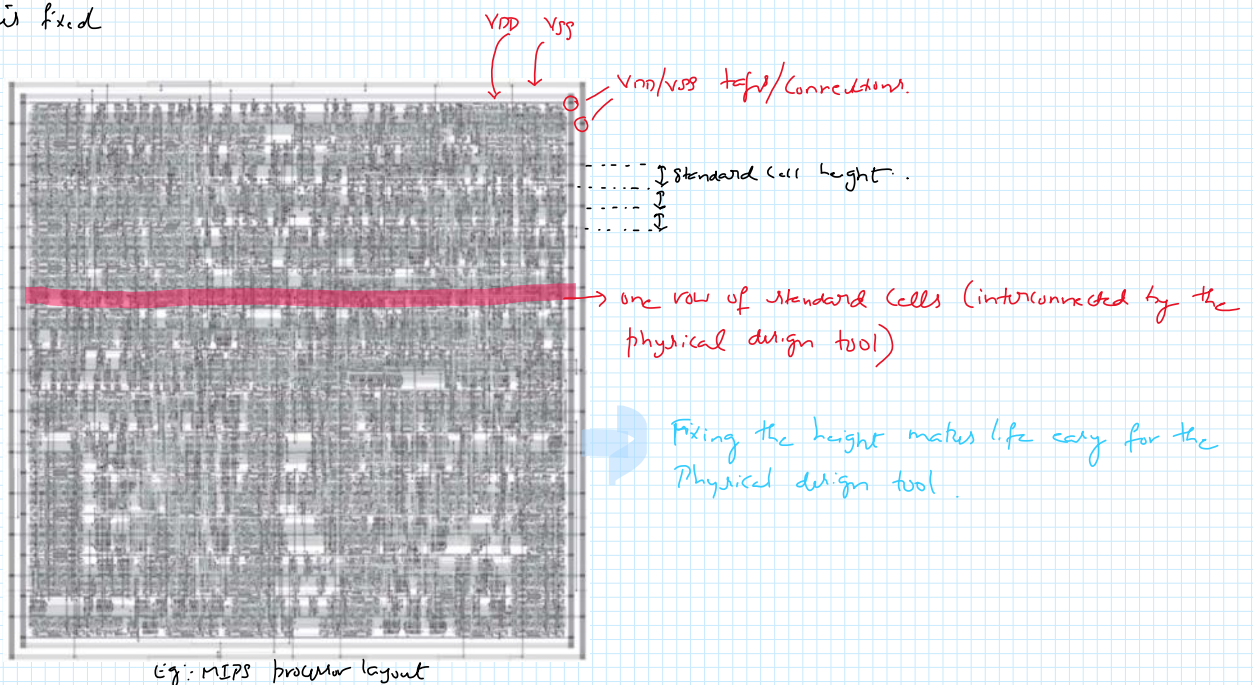 is fixed
VDD VSS
VDD/VSS taps/Connections.
Standard Cell height.
one row of standard cells (interconnected by the
physical design tool)
Fixing the height makes life easy for the
Physical design tool.
Eg:- MIPS processor layout